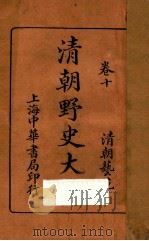 卷十
清朝藝
清朝野史大
上海中華書局印行